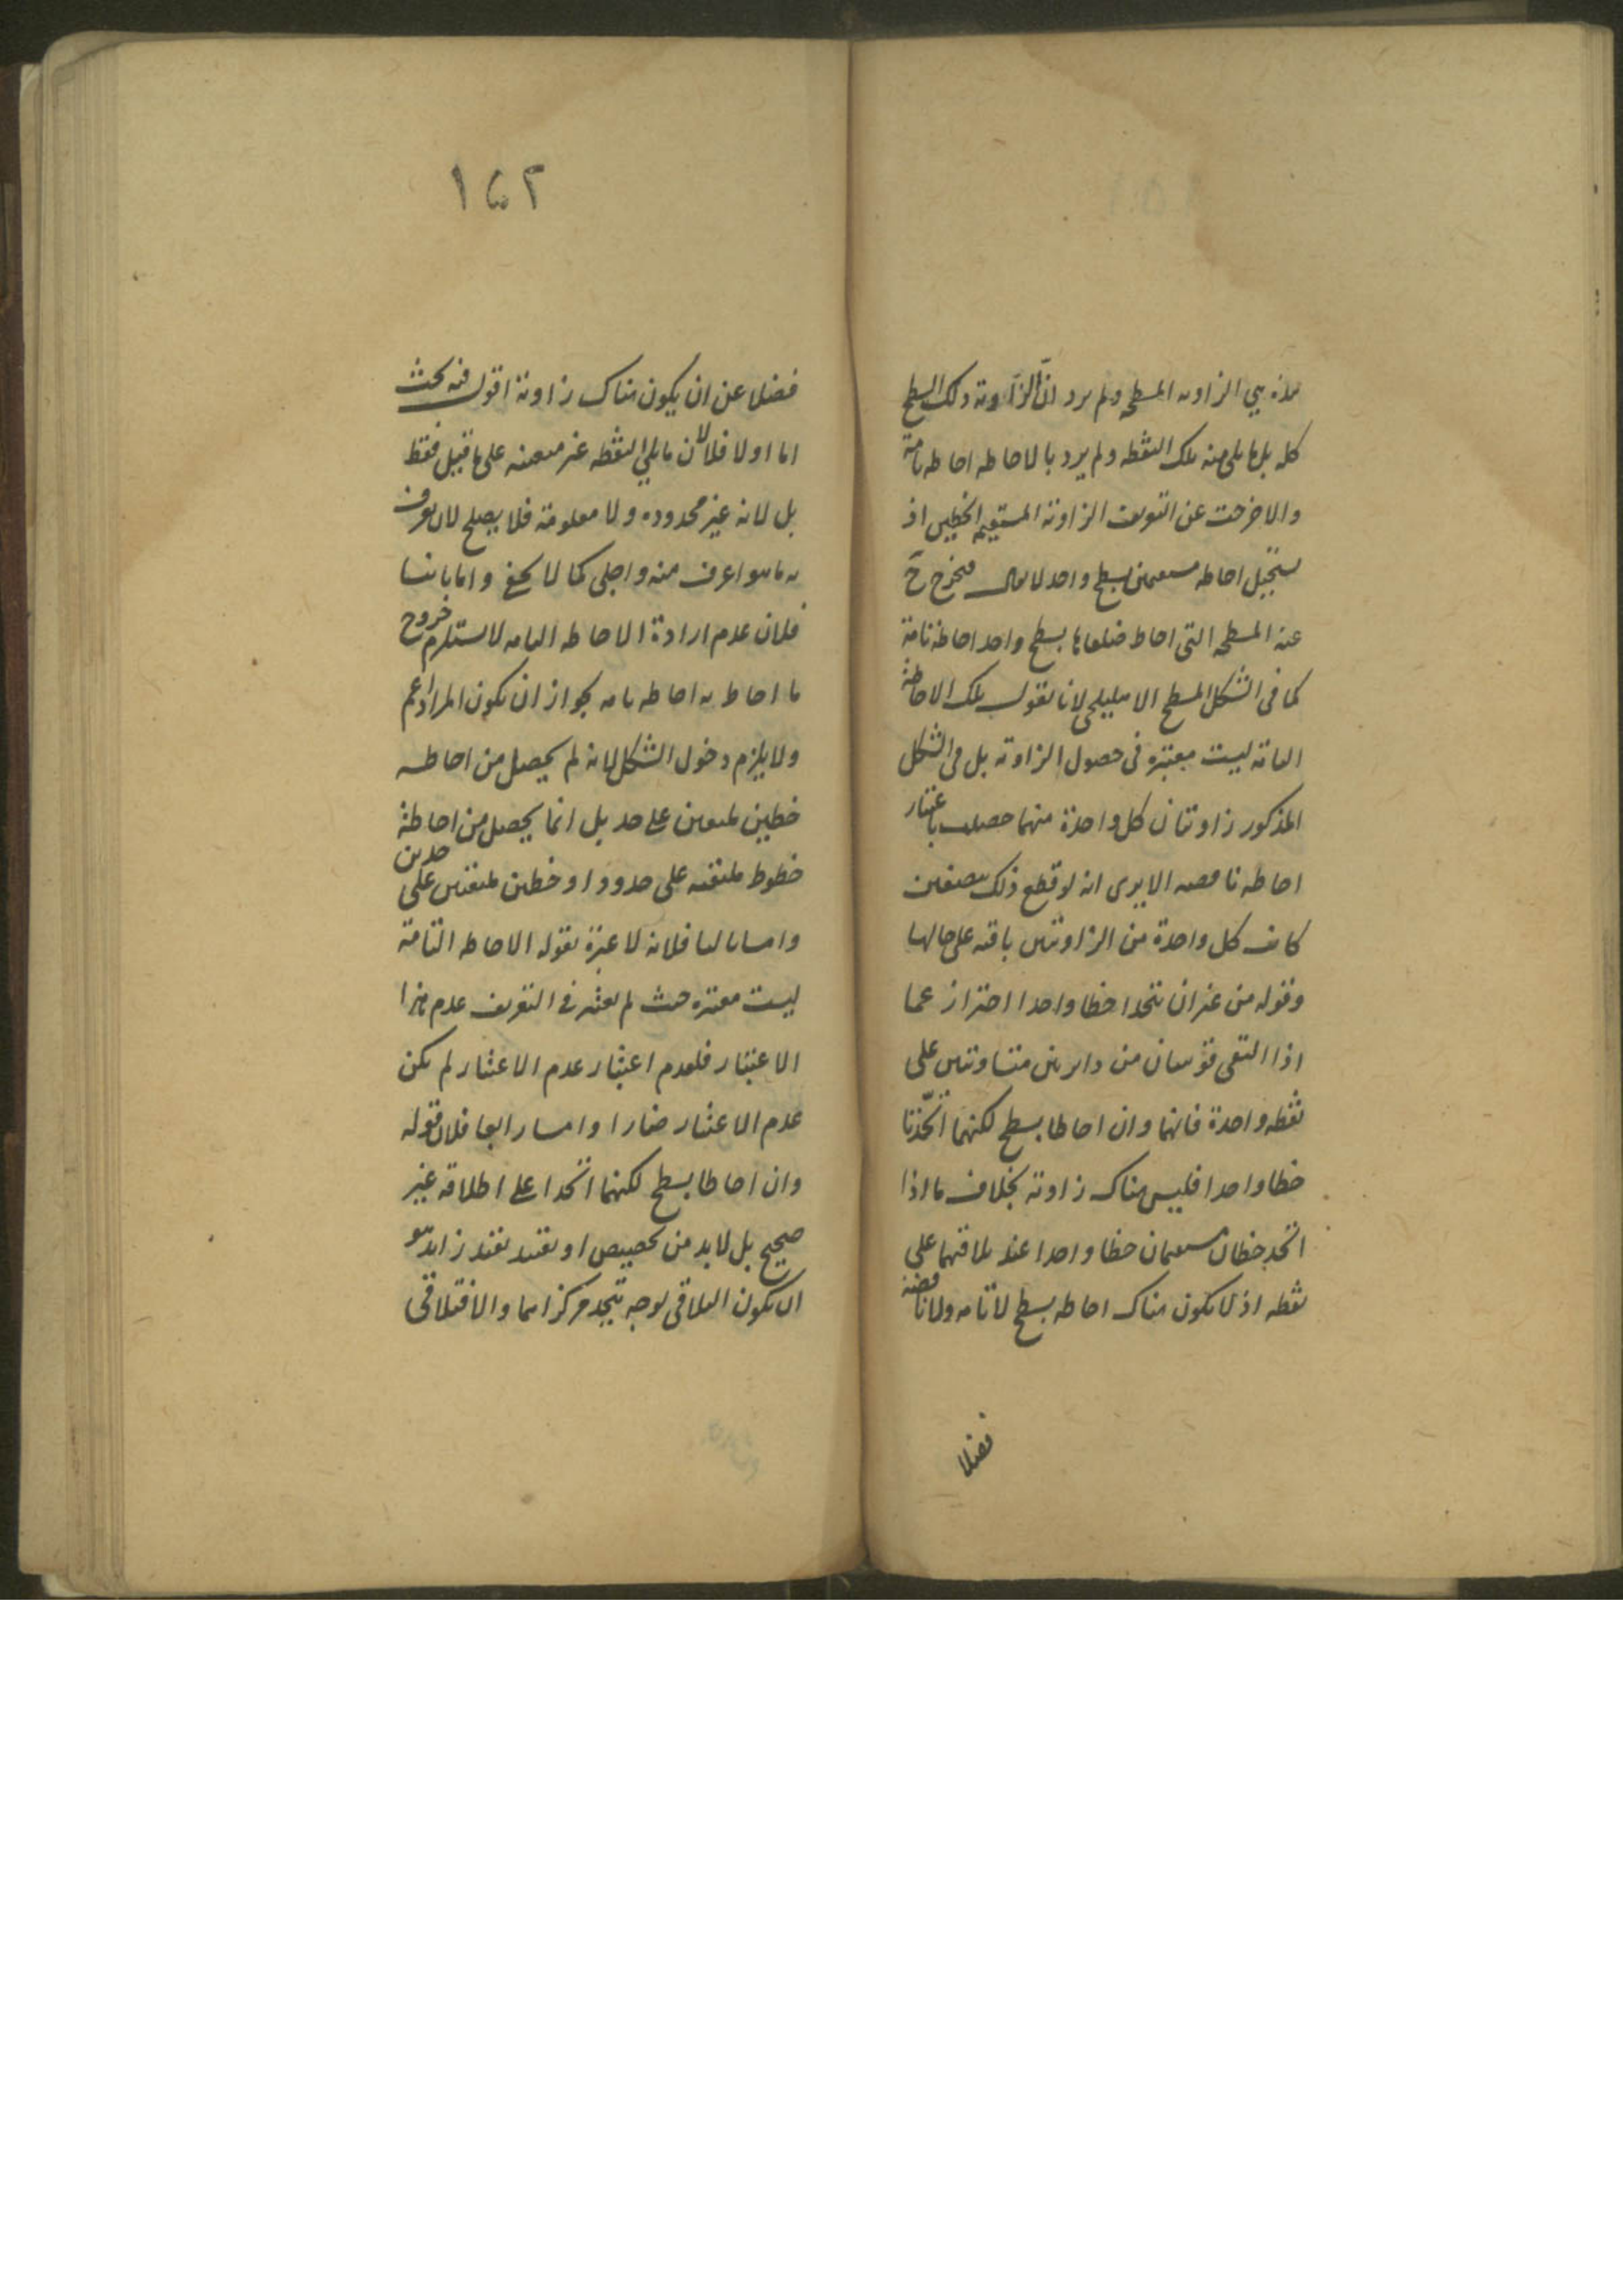 هذه هي الزاوية المسطحة ولم يرد ان الزاوية ذلك السطح
كله بل ما يلي منه تلك النقطة ولم يرد بالاحاطة احاطة تامة
والا خرجت عن التعريف الزاوية المستقيم الخطين اذ
يستحيل احاطة مستقيمين بسطح واحد لا يقال فيخرج ح
عنه المسطحة التي احاط ضلعاها بسطح واحد احاطة تامة
كما في الشكل المسطح الاهليلجي لانا نقول تلك الاحاطة
التامة ليست معتبرة في حصول الزاوية بل في الشكل
المذكور زاويتان كل واحدة منهما حصلت باعتبار
احاطة ناقصة الا يرى انه لو قطع ذلك بنصفين
كانت كل واحدة من الزاويتين باقية على حالها
وقوله من غير ان يتحدا خطا واحدا احتراز عما
اذا التقى قوسان من دايرتين متساويتين على
نقطة واحدة فانهما وان احاطا بسطح لكنهما اتحدتا
خطا واحدا فليس هناك زاوية بخلاف ما اذا
اتحد خطان مستقيمان خطا واحدا عند تلاقيهما على
نقطة اذ لا يكون هناك احاطة بسطح لا تامة ولا ناقصة
فضلا
١٥٢
فضلا عن ان يكون هناك زاوية اقول فيه بحث
اما اولا فلان ما يلي النقطة غير متعينة على ما قيل فقط
بل لانه غير محدوده ولا معلومة فلا يصلح لان يعرف
به ما هو اعرف منه واجلى كما لا يخفى واما ثانيا
فلان عدم ارادة الاحاطة التامه لا يستلزم خروج
ما احاط به احاطة تامه لجواز ان يكون المراد اعم
ولا يلزم دخول الشكل لانه لم يحصل من احاطة
خطين ملتقيين على حد بل انما يحصل من احاطة
خطوط ملتقية على حدود او خطين ملتقيين على حدين
واما ثالثا فلانه لا عبرة بقوله الاحاطة التامة
ليست معتبره حيث لم يعتبر في التعريف عدم هذا
الاعتبار فلعدم اعتبار عدم الاعتبار لم يكن
عدم الاعتبار ضارا واما رابعا فلان قوله
وان احاطا بسطح لكنهما اتحدا على اطلاقه غير
صحيح بل لا بد من تخصيص او تقييد بقيد زايد هو
ان يكون التلاقي بوجه يتحد مركزاهما والا فتلاقي